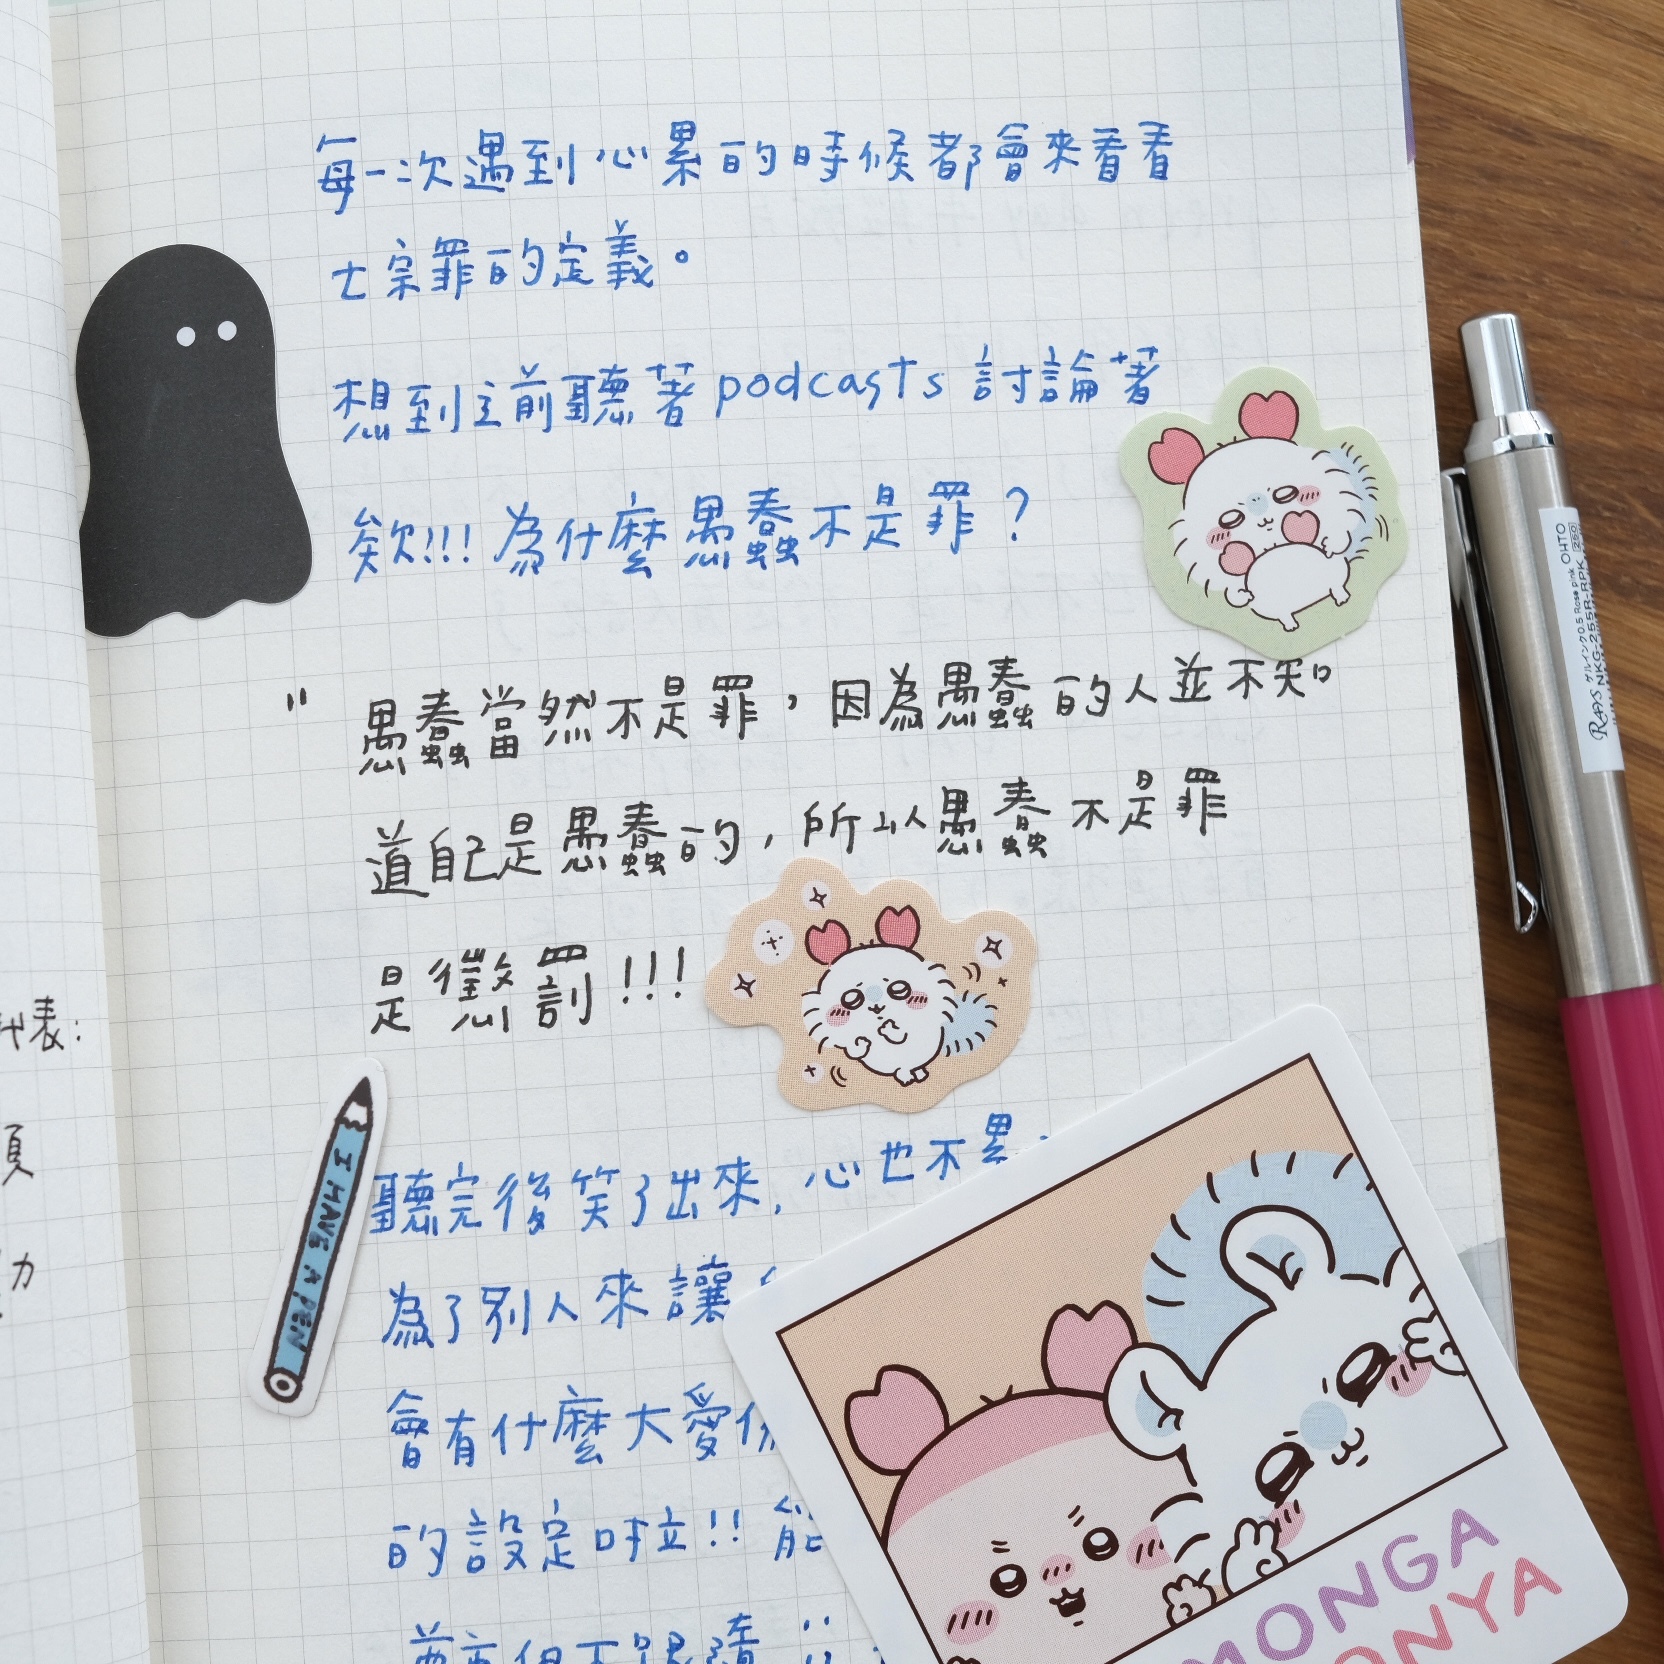 每一次遇到心累的時候都會來看看
七宗罪的定義。
想到之前聽著podcasts討論著
欸!!!為什麼愚蠢不是罪?
"愚蠢當然不是罪，因為愚蠢的人並不知
道自己是愚蠢的，所以愚蠢不是罪
是懲罰!!!
聽完後笑了出來，心也不累
為了別人來讓
會有什麼大愛
的設定啦!! 能
代表:
頁
力
I HAVE A PEN
MONGA
ONYA
Rays ゲルインク0.5 Rose Pink OHTO
NKG-255R-RPK 250